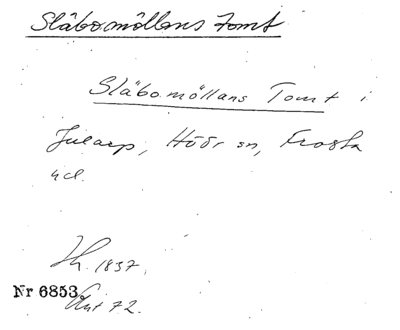 Släbomöllans Tomt
Släbomöllans Tomt i
Jularp, Höör sn, Frosta
hd.
1837.
Nr 6853
Ant 72.